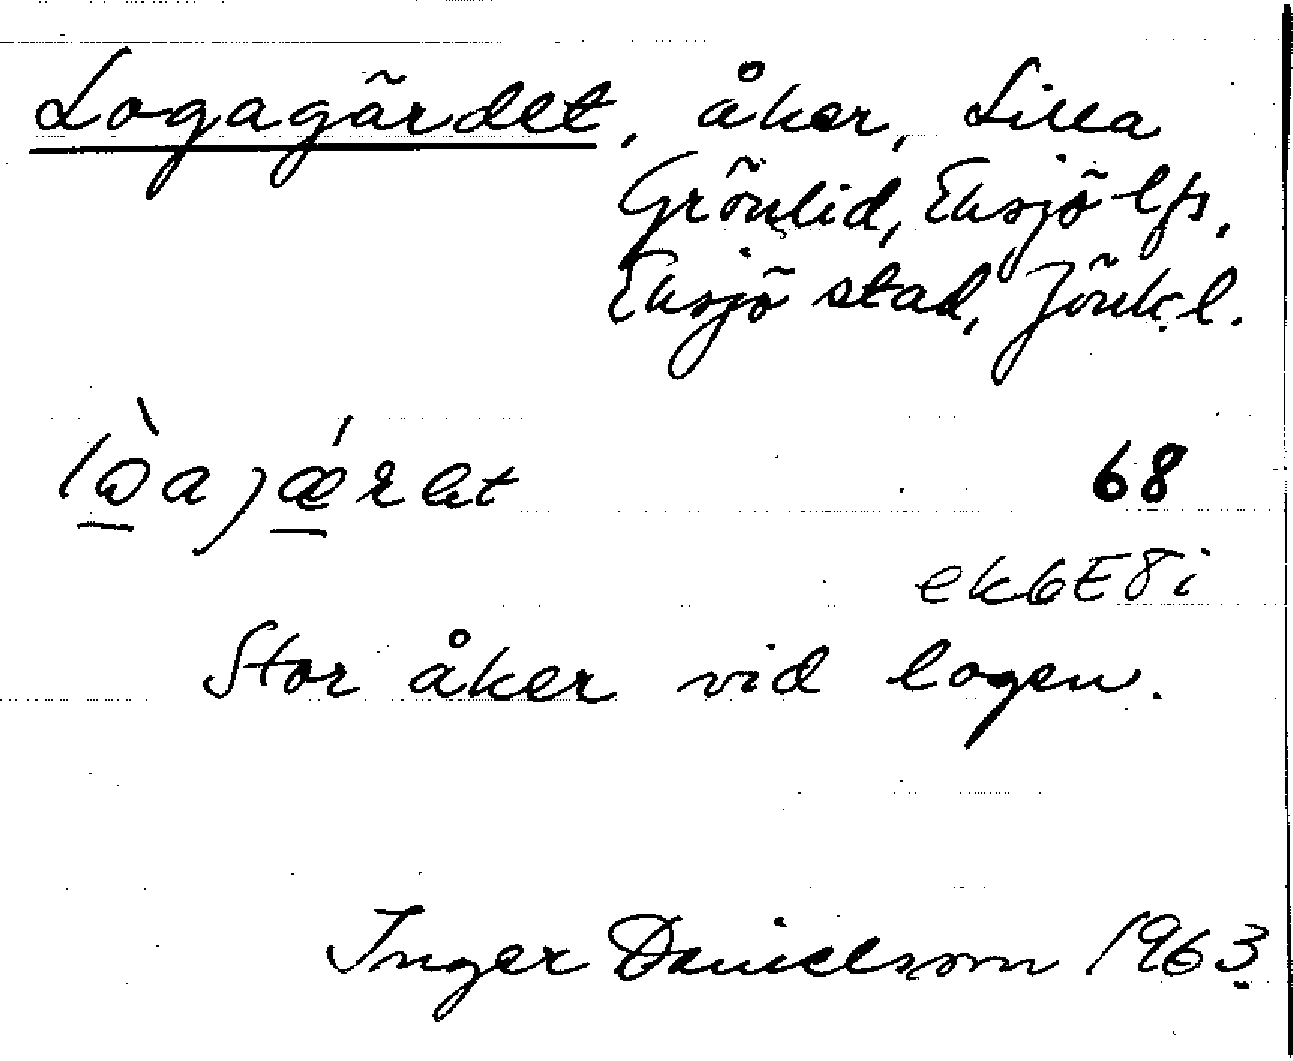 Logagärdet, åker, Lilla
Grönlid, Eksjö lfs,
Eksjö stad, Jönk.l.
68
ek6E8i
Stor åker vid logen.
Inger Danielsson 1963